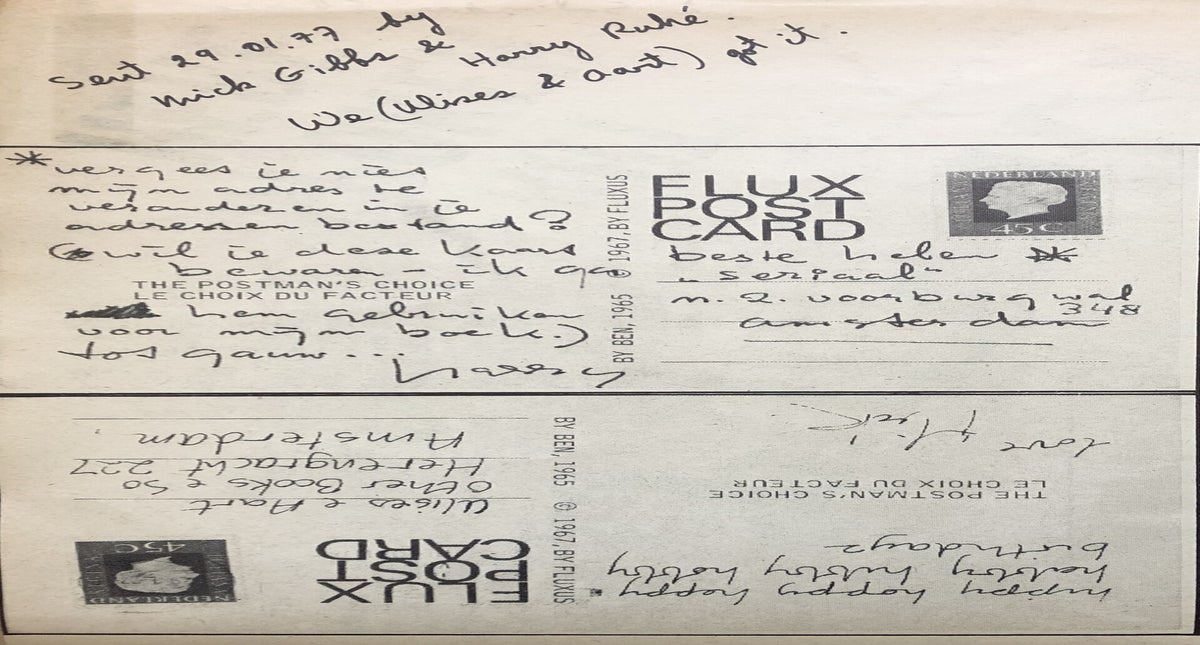 Sent 29.01.77 by
Mick Gibbs &
Harry Ruhé.
We (Ulises & Aart) got it.
* vergees je niet
mijn adres te
veranderen in je
adressen bestand?
( wil je deze kaart
bewaren - ik ga
THE POSTMAN'S CHOICE
LE CHOIX DU FACTEUR
hem gebruiken
voor mijn boek.)
tot gauw...
harry
BY BEN, 1965 © 1967, BY FLUXUS
FLUX
POST
CARD
NEDERLAND
45C
beste helen *
"seriaal"
n.z. voorburgwal
348
amsterdam
FLUX
POST
CARD
NEDERLAND
45C
Ulises & Aart
Other Books & So
Herengracht 227
Amsterdam.
BY BEN, 1965 © 1967, BY FLUXUS
happy happy hoppy
birthday
THE POSTMAN'S CHOICE
LE CHOIX DU FACTEUR
love Mick